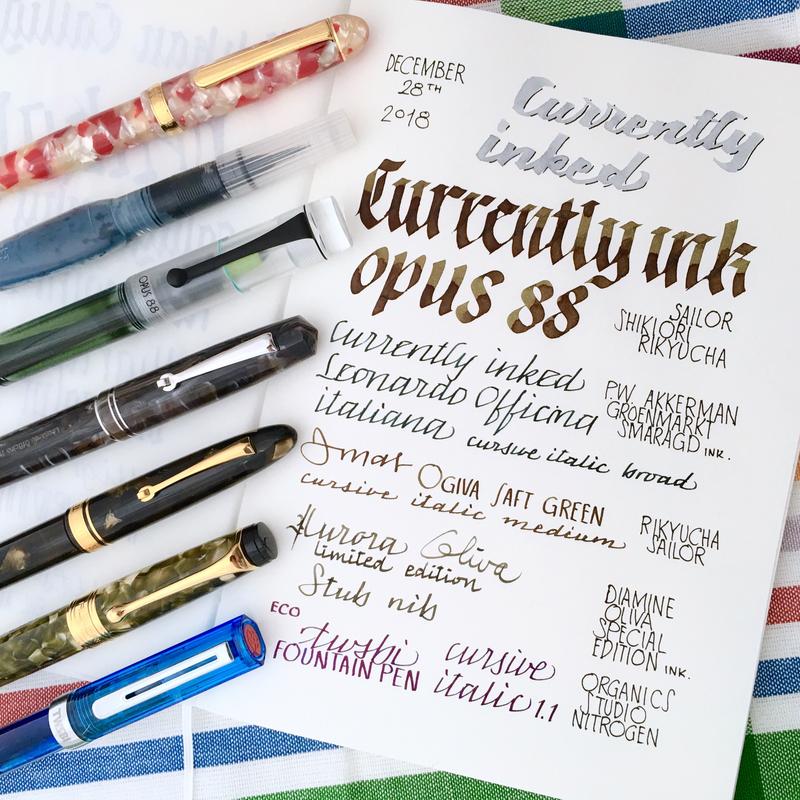 DECEMBER
28TH
2018
Currently
inked
Currently ink
opus 88
SAILOR
SHIKIORI
RIKYUCHA
currently inked
Leonardo Officina
italiana cursive italic broad
P.W. AKKERMAN
GROENMARKT
SMARAGD INK.
Omas OGIVA SAFT GREEN
cursive italic medium
RIKYUCHA
SAILOR
Aurora Oliva
limited edition
Stub nib
DIAMINE
OLIVA
SPECIAL
EDITION INK.
ECO
twsbi cursive
FOUNTAIN PEN italic 1.1
ORGANICS
STUDIO
NITROGEN
OPUS 88
TWSBI